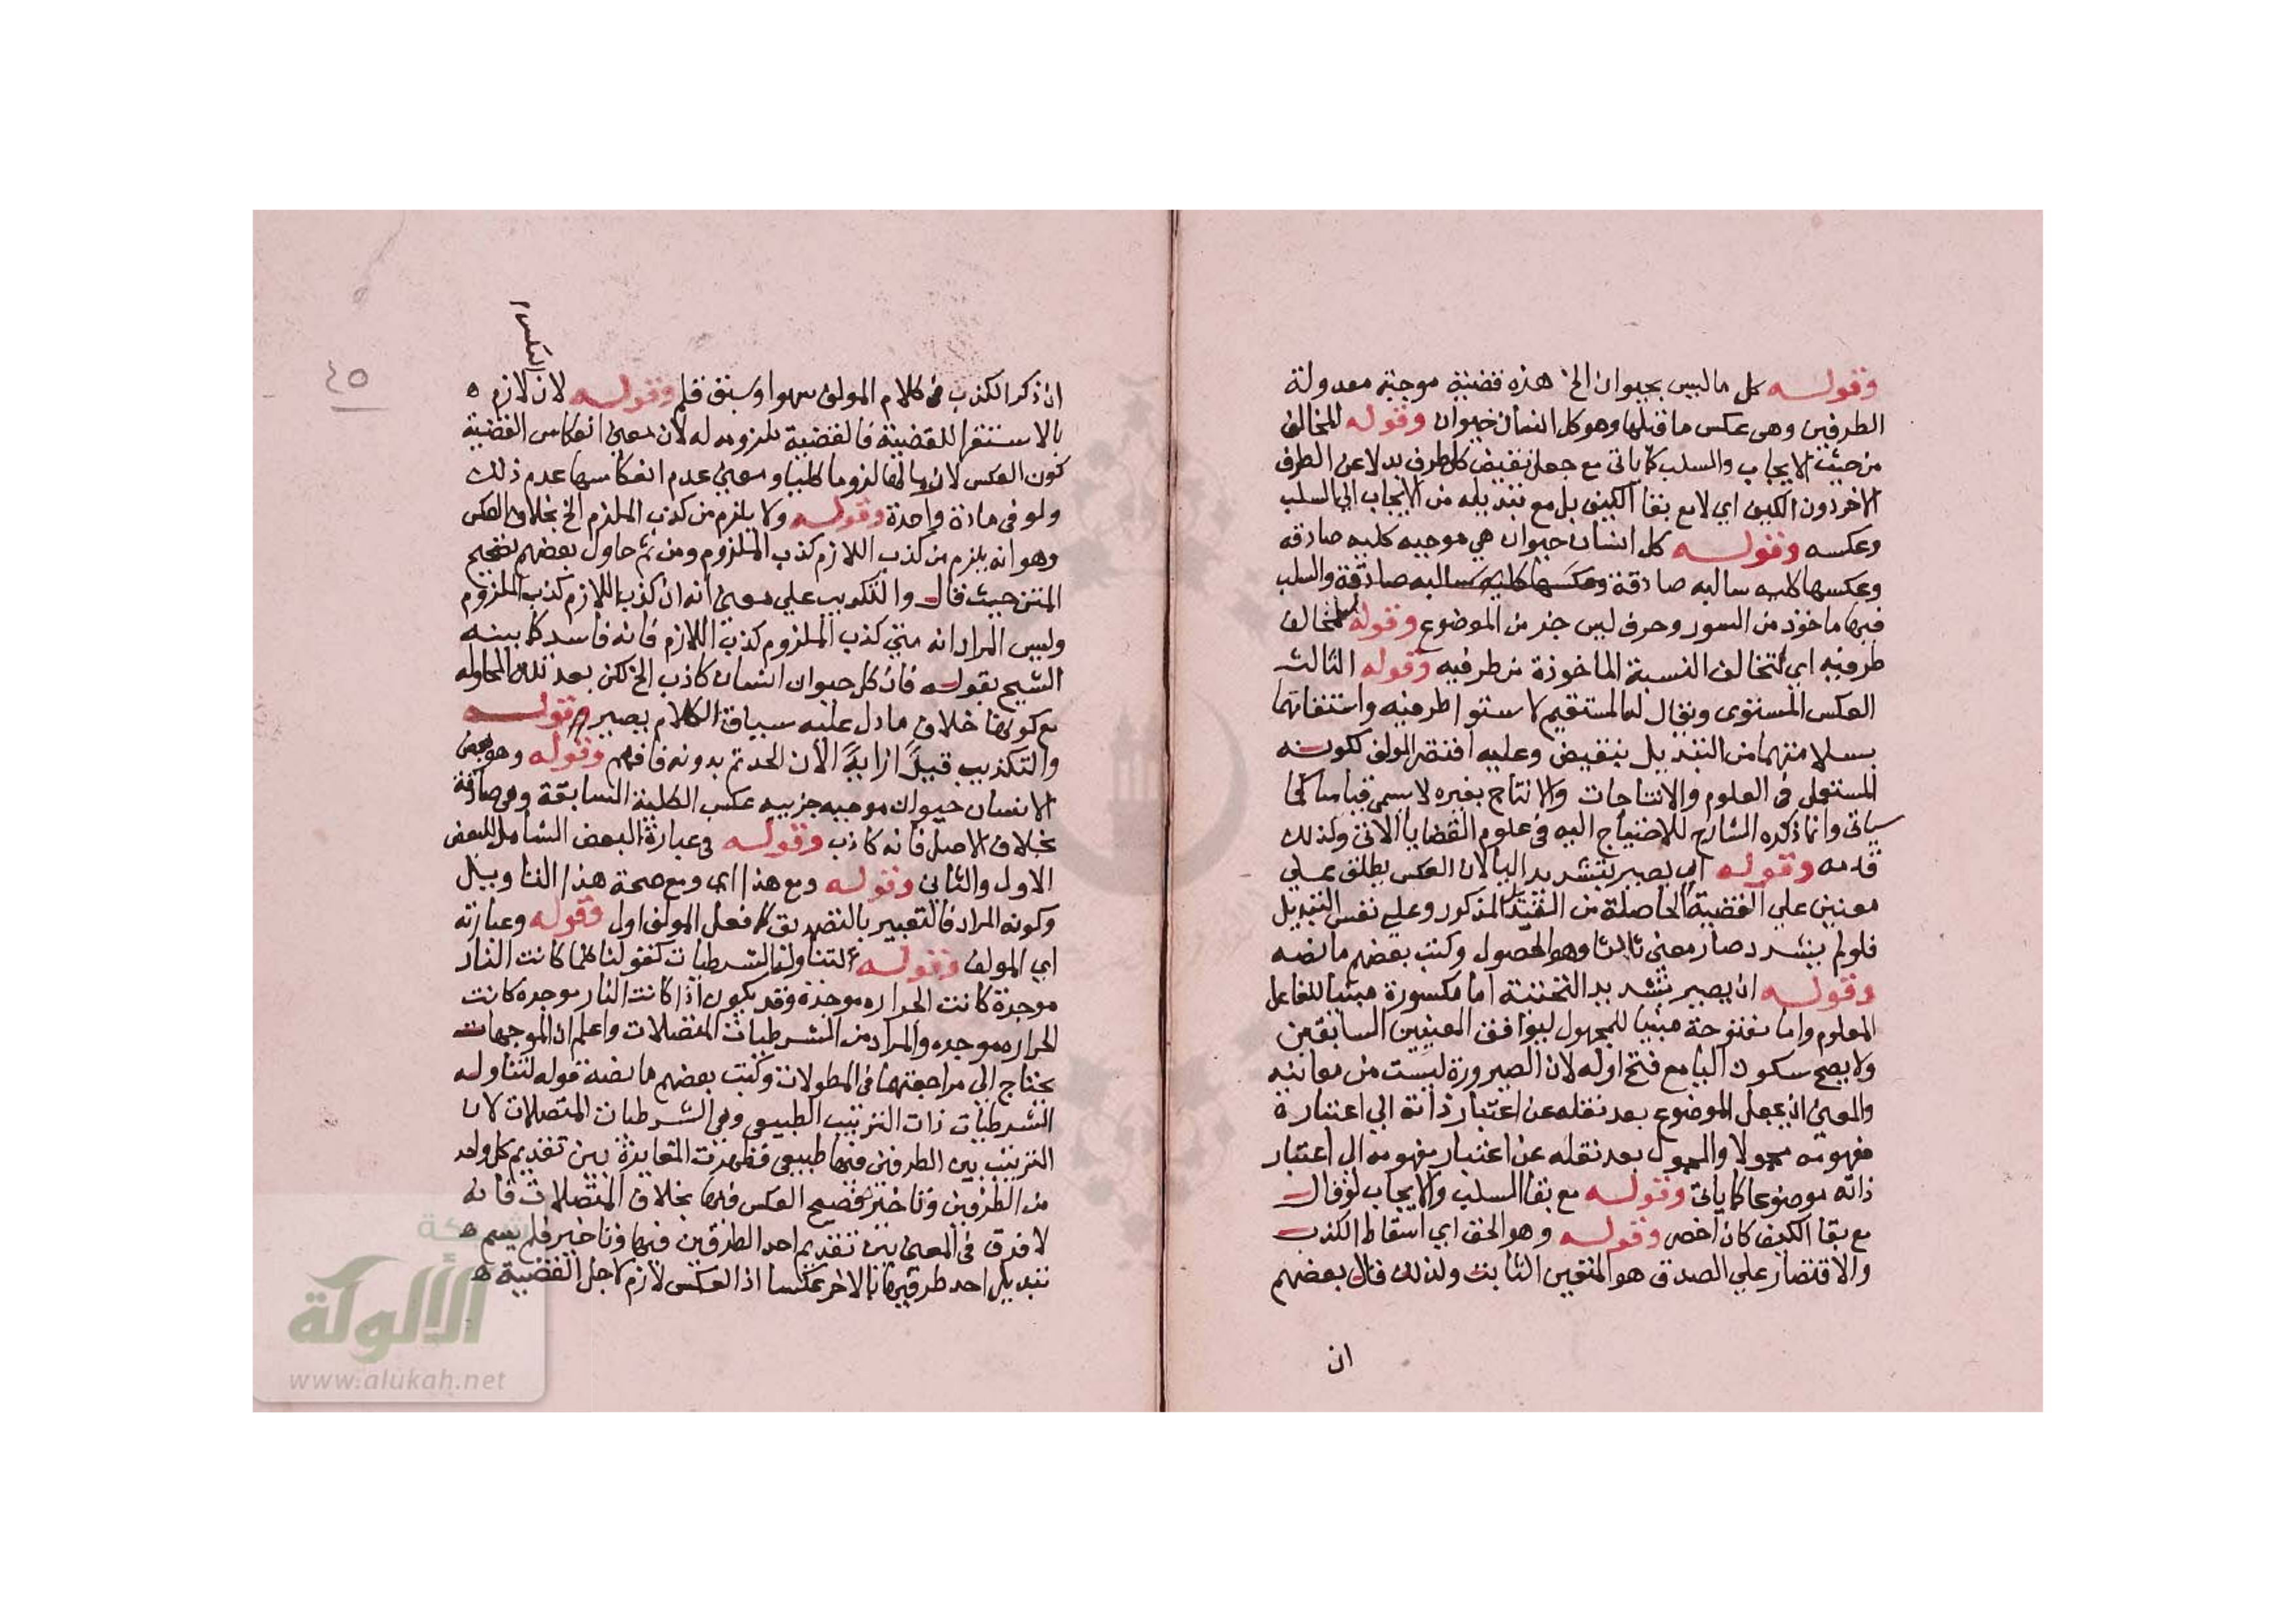 وقوله كل ما ليس بحيوان الخ هذه قضية موجبة معدولة
الطرفين وهي عكس ما قبلها وهو كل انسان حيوان وقوله المخالف
من حيث الايجاب والسلب كما ياتي مع جعل نقيض كل طرف بدلا عن الطرف
الاخر دون الكيف اي لا مع بقا الكيف بل مع تبديله من الايجاب الي السلب
وعكسه وقوله كل انسان حيوان هي موجبه كليه صادقه
وعكسها كليه سالبه صادقة وعكسها كليه سالبه صادقة والسلب
فيها ماخوذ من السور وحرف ليس جز من الموضوع وقوله لتخالف
طرفيه اي لتخالف النسبة الماخوذة من طرفيه وقوله الثالث
العكس المستوي ويقال له المستقيم لاستوا طرفيه واستقامتها
بسلامتهما من التبديل بنقيض وعليه اقتصر المولف لكونه
المستعمل في العلوم والانتاجات والانتاج بغيره لا يسمي قياسا كما
سياتي وانما ذكره الشارح للاحتياج اليه في علوم القضايا الاتي ولذلك
قدمه وقوله اي يصير بتشديد اليا لان العكس يطلق علي
معنيين علي القضية الحاصلة من التبديل المذكور وعلي نفس التبديل
فلو لم يشدد صار معني ثالثا وهو الحصول وكتب بعضهم ما نصه
وقوله ان يصير بتشديد التحتية اما مكسورة مبنيا للفاعل
المعلوم واما مفتوحة مبنيا للمجهول ليوافق المعنيين السابقين
ولا يصح سكون اليا مع فتح اوله لان الصيرورة ليست من معانيه
والمعني ان يجعل الموضوع بعد نقله عن اعتبار ذاته الي اعتباره
مفهومه محمولا والمحمول بعد نقله عن اعتبار مفهومه الي اعتبار
ذاته موضوعا كما ياتي وقوله مع بقا السلب والايجاب لو قال
مع بقا الكيف كان اخصر وقوله وهو الحق اي اسقاط الكذب
والاقتصار علي الصدق هو المتعين الثابت ولذلك قال بعضهم
ان
٤٥
العكس
ان ذكر الكذب في كلام المولف سهو او سبق قلم وقوله لان لازم
بالاستقرا للقضية فالقضية ملزومه له لان معني انعكاس القضية
كون العكس لازما لها لزوما كليا ومعني عدم انعكاسها عدم ذلك
ولو في مادة واحدة وقوله ولا يلزم من كذب الملزم الخ بخلاف العكس
وهو انه يلزم من كذب اللازم كذب الملزوم ومن ثم حاول بعضهم تصحيح
المتن حيث قال والتكذيب علي معني انه ان كذب اللازم كذب الملزوم
وليس المراد انه متي كذب الملزوم كذب اللازم فانه فاسد كما بينه
الشيح بقوله فان كل حيوان انسان كاذب الخ لكن بعد تلك المحاوله
مع كونها خلاف ما دل عليه سياق الكلام يصير وقوله
والتكذيب قيدا زايدا لان الحد تم بدونه فافهم وقوله وهو بعض
الانسان حيوان موجبه جزييه عكس الكلية السابقة وهي صادقة
بخلاف الاصل فانه كاذب وقوله في عبارة البعض الشامل للبعض
الاول والثاني وقوله ومع هذا اي ومع صحة هذا التاويل
وكونه المراد فالتعبير بالتصديق كما فعل المولف اولي وقوله وعبارته
اي المولف وقوله لتناولها الشرطيات كقولنا كلما كانت النار
موجدة كانت الحراره موجدة وقد يكون اذا كانت النار موجده كانت
الحراره موجده والمراد من الشرطيات المتصلات واعلم ان الموجهات
يحتاج الي مراجعتها في المطولات وكتب بعضهم ما نصه قوله لتناوله
الشرطيات ذات الترتيب الطبيعي وهي الشرطيات المتصلات لان
الترتيب بين الطرفين فيها طبيعي فظهرت المغايرة بين تقديم كل واحد
من الطرفين وتاخيره فصح العكس فيها بخلاف المنفصلات فانه
لا فرق في المعني بين تقديم احد الطرفين فيها وتاخيره فلم يسم
تبديل احد طرفيها بالاخر عكسا اذ العكس لازم لاجل القضية
شبكة
الألوكة
www.alukah.net